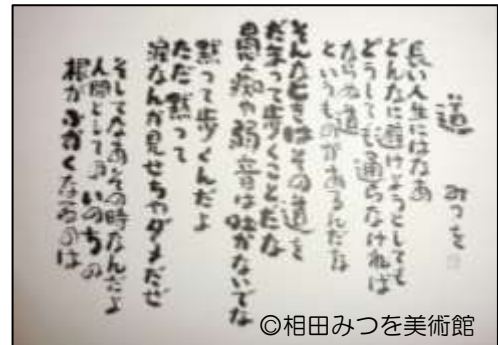 道 みつを
長い人生にはなあ
どんなに避けようとしても
どうしても通らなければ
ならぬ道
というものがあるんだな
そんなときはその道を
だまって歩くことだな
愚痴や弱音は吐かないでな
黙って歩くんだよ
ただ黙って
涙なんか見せちゃダメだぜ
そしてなあその時なんだよ
人間としてのいのちの
根がふかくなるのは
©相田みつを美術館